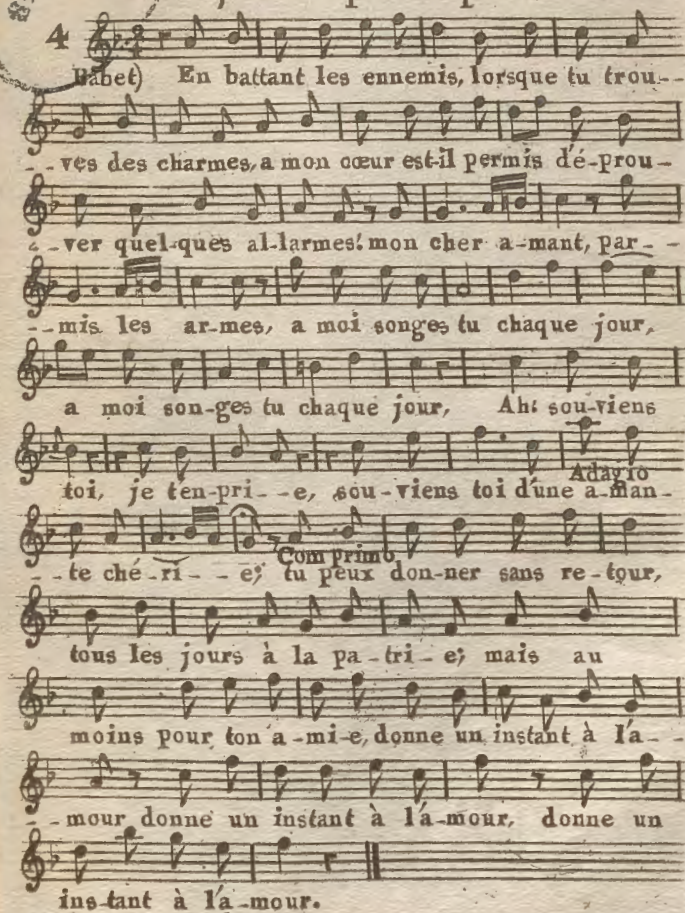 4
Babet) En battant les ennemis, lorsque tu trou--
--ves des charmes, a mon cœur est-il permis d'é-prou-
--ver quel-ques al-larmes! mon cher a-mant, par--
--mis les ar-mes, a moi songes tu chaque jour,
a moi son-ges tu chaque jour, Ah! sou-viens
toi, je t'en-pri--e, sou-viens toi d'une a-man-
Adagio
--te ché-ri--e; tu peux don-ner sans re-tour,
Com primo
tous les jours à la pa-tri-e; mais au
moins pour ton a-mi-e, donne un instant à l'a--
--mour donne un instant à l'a-mour, donne un
ins-tant à l'a-mour.